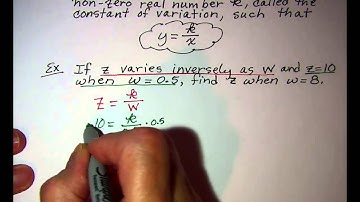 non-zero real number k, called the
constant of variation, such that
y = k/x
Ex If z varies inversely as w and z=10
when w = 0.5, find z when w=8.
z = k/w
10 = k/ · 0.5